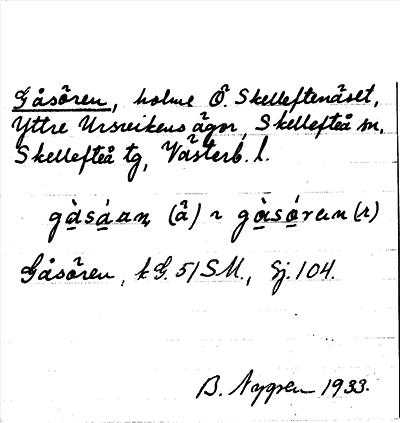 Gåsören, holme Ö. Skelleftenäset,
Yttre Ursvikens ägor, Skellefteå sn,
Skellefteå tg, Västerb. l.
gåsáan, (å) ~ gåsóran (r)
Gåsören, k G. 51 SM., Sj. 104.
B. Nygren 1933.